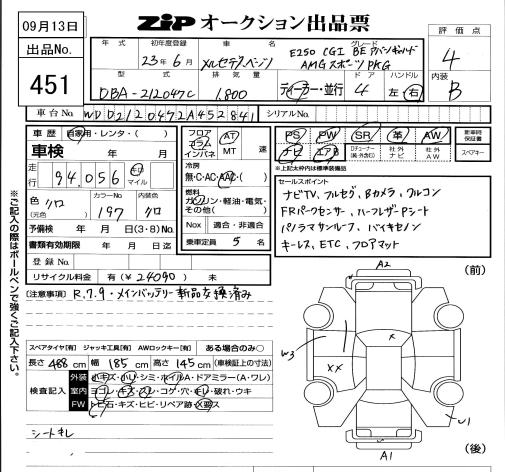 09月13日
ZIP オークション出品票
出品No.
451
評価点
4
内装
B
年式
初年度登録
車名
グレード
23年6月
メルセデスベンツ
E250 CGI BE アバンギャルド
AMGスポーツPKG
型式
排気量
ドア
ハンドル
DBA-212047C
1,800
ディーラー・並行
4
左・右
車台No.
WDD2120472A452841
シリアルNo.
車歴
自家用・レンタ・( )
車検
年 月
走行
94,056
km
マイル
色
(元色)
クロ
カラーNo
197
内装色
クロ
予備検 年 月 日(3・8)No.
書類有効期限 年 月 日迄
登録No.
リサイクル料金 有(¥24090) 未
フロア
コラム
インパネ
AT
MT
速
冷房
無・C・AC・AAC・( )
燃料
ガソリン・軽油・電気・
その他( )
Nox 適合・非適合
乗車定員 5 名
PS
PW
SR
革
AW
ナビ
エアB
Dチューナー
社外ナビ
社外AW
新車時保証書
スペアキー
*上記太枠内は標準装備品
セールスポイント
ナビTV、フルセグ、Bカメラ、フルコン
FRパークセンサー、ハーフレザーPシート
パノラマサンルーフ、バイキセノン
キーレス、ETC、フロアマット
注意事項
R.7.9・メインバッテリー新品交換済み
スペアタイヤ[有] ジャッキ工具[有] AWロックキー[有] ある場合のみ○
長さ 488 cm 幅 185 cm 高さ 145 cm (車検証上の寸法)
検査記入
外装
小キズ・小U・シミ・ホイルA・ドアミラー(A・ワレ)
室内
ヨゴレ・キズ・スレ・コゲ・穴・キレ・破れ・ウキ
FW
トビ石・キズ・ヒビ・リペア跡・X要ス
シートキレ
(前)
A2
W3
X
XX
X
U1
A1
(後)
※ご記入の際はボールペンで強くご記入下さい。